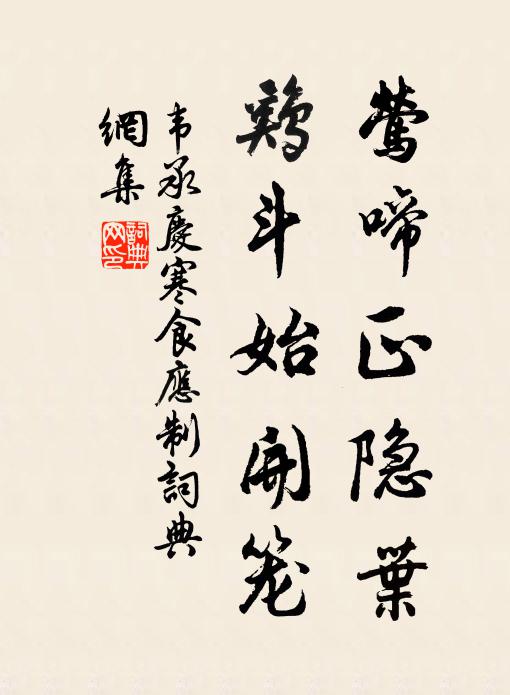 莺啼正隐葉
鷄斗始開笼
韦承慶寒食應制詞典
網集
詞典网印